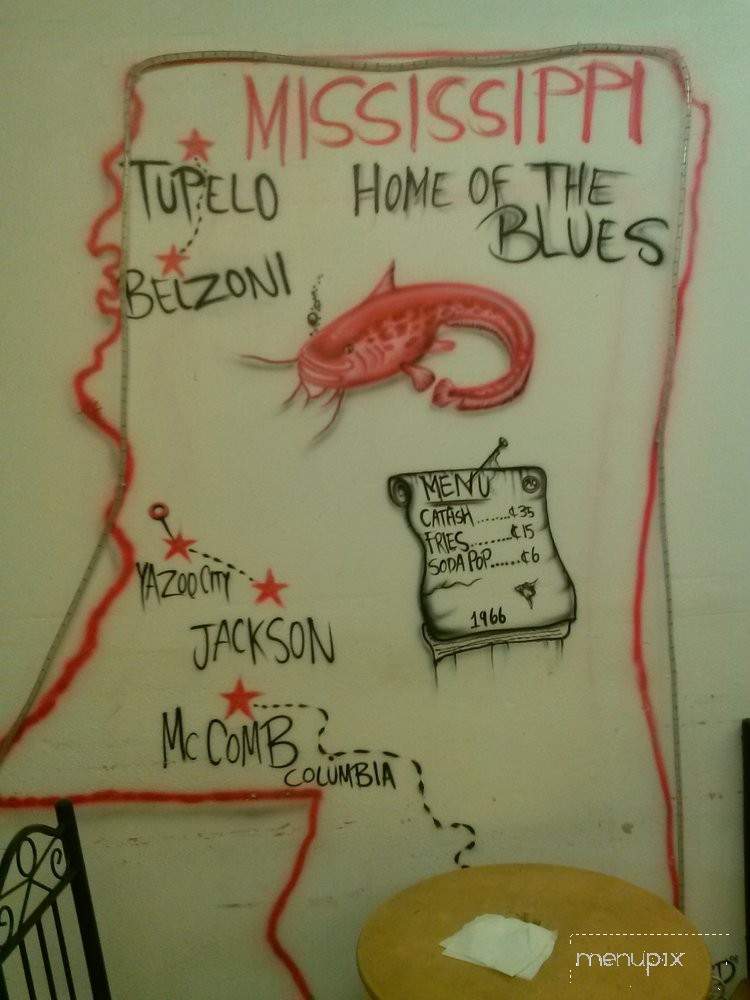 MISSISSIPPI
TUPELO
HOME OF THE
BLUES
BELZONI
MENU
CATFISH........¢35
FRIES........¢15
SODA POP......¢6
1966
YAZOO CITY
JACKSON
McCOMB
COLUMBIA
menupix